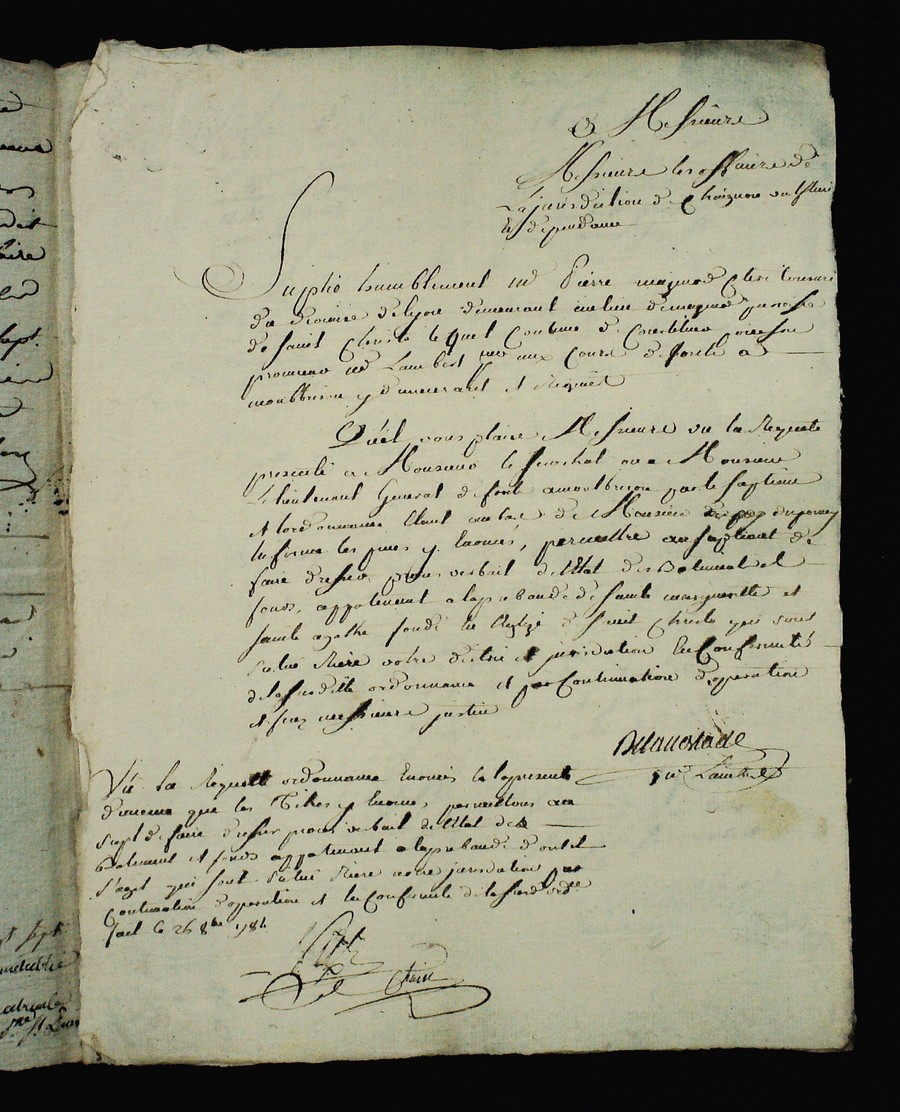 A Messieurs
Messieurs les officiers de
La jurisdiction de
et dependance
Suplie humblement Pierre clerc tonsuré
du diocese de lyon demeurant au lieu de paroisse
de saint lequel continue de constituer pour son
procureur me Lambert aux cours de forest a
montbrison y demeurant et Requiert
Qu'il vous plaise Messieurs vu la Requete
presenté a Monsieur le senechal ou a Monsieur
Le lieutenant General de forest a montbrison par le supliant
et lordonnance Etant au bas de Monsieur
Ensemble les pieces y Enoncés, permettre au supliant de
faire dresser procès verbail de lEtat des Batiment et
fonds, appartenant a la prebande de sainte margueritte et
sainte agathe fondé en lEglize de saint qui sont
situé Riere votre et jurisdiction En Conformité
de la susditte ordonnance et par Continuation doperation
et ferez messieurs justice
Lambert
Vû la Requette ordonnance Enoncés en la presente
Ensemble que les Titres y Enoncés, permettons au
supt de faire dresser procès verbail de lEtat des
Batiment et fonds appartenant a la prebande dont il
s'agit qui sont situé Riere notre jurisdiction par
Continuation doperation et En Conformité de la susd ordce
fait le 26 8bre 1784